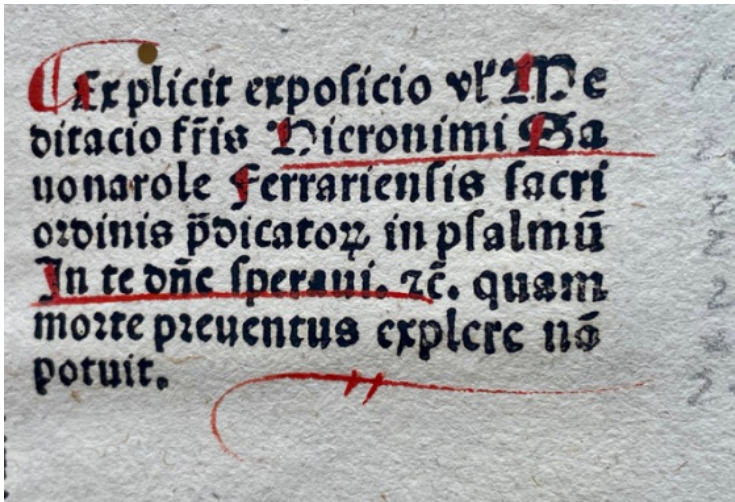 Explicit exposicio vl' Me
ditacio fr̃is Hieronimi Sa
uonarole Ferrariensis sacri
ordinis p̃dicatoꝝ in psalmũ
In te dñe speraui. ⁊c̃. quam
morte preuentus explere nõ
potuit.